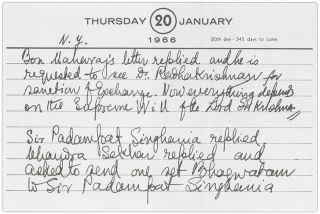 THURSDAY 20 JANUARY
1966
20th day - 345 days to come
N. Y.
Bon Maharaj's letter replied and he is
requested to see Dr. Radhakrishnan for
sanction of Exchange. Now everything depends
on the Supreme Will of the Lord Sri Krishna
Sir Padampat Singhania replied
Chandra Sekhar replied and
asked to send one set Bhagwatam
to Sir Padampat Singhania